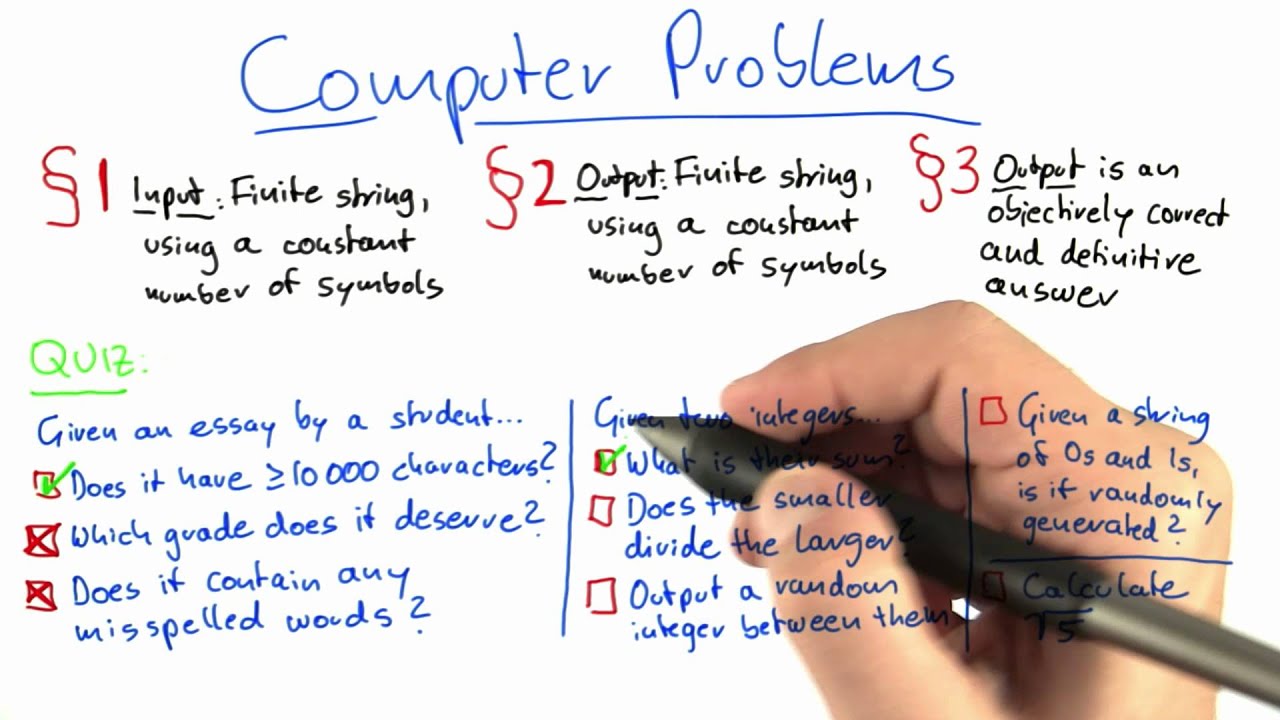 Computer Problems
§1 Input: Finite string,
using a constant
number of symbols
§2 Output: Finite string,
using a constant
number of symbols
§3 Output is an
objectively correct
and definitive
answer
QUIZ:
Given an essay by a student...
Does it have ≥10000 characters?
Which grade does it deserve?
Does it contain any
misspelled words?
Given two integers...
What is their sum?
Does the smaller
divide the larger?
Output a random
integer between them
Given a string
of 0s and 1s,
is it randomly
generated?
Calculate
√5